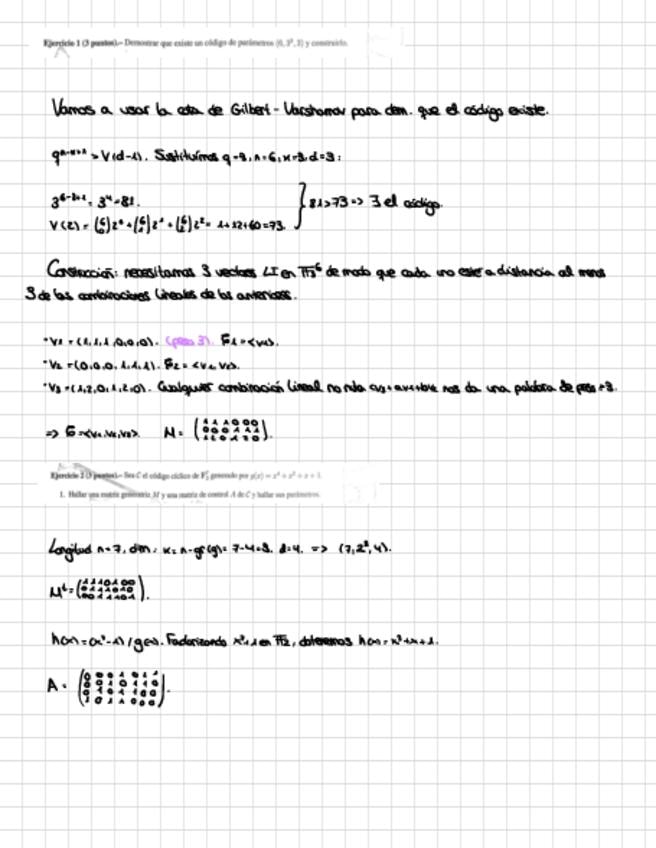 Ejercicio 1 (3 puntos).– Demostrar que existe un código de parámetros (6, 3³, 3) y construirlo.
Vamos a usar la cota de Gilbert - Varshamov para dem. que el código existe.
qⁿ⁻ᵏ⁺¹ > V(d-1). Sustituimos q=3, n=6, k=3, d=3:
3⁶⁻³⁺¹ = 3⁴ = 81.
81>73 => ∃ el código.
V(2) = (6 0)2⁰ + (6 1)2¹ + (6 2)2² = 1+12+60=73.
Construcción: necesitamos 3 vectores LI en F₃⁶ de modo que cada uno esté a distancia al menos
3 de las combinaciones lineales de los anteriores.
· V1 = (1,1,1,0,0,0). (peso 3). G1 = <v1>.
· V2 = (0,0,0,1,1,1). G2 = <v1, v2>.
· V3 = (1,2,0,1,2,0). Cualquier combinación lineal no nula nos da una palabra de peso
=> G=<v1,v2,v3> M = (111000 000111 120120).
Ejercicio 2 (3 puntos).– Sea C el código cíclico de F₂⁷ generado por g(x) = x⁴ + x² + x + 1.
1. Hallar una matriz generatriz M y una matriz de control A de C y hallar sus parámetros.
Longitud n=7, dim: k= n-gr(g)= 7-4=3. d=4. => (7,2³,4).
Mᵗ = (1110100 0111010 0011101).
h(x) = (x⁷-1)/g(x). Factorizando x⁷+1 en F₂, obtenemos h(x) = x³+x+1.
A =